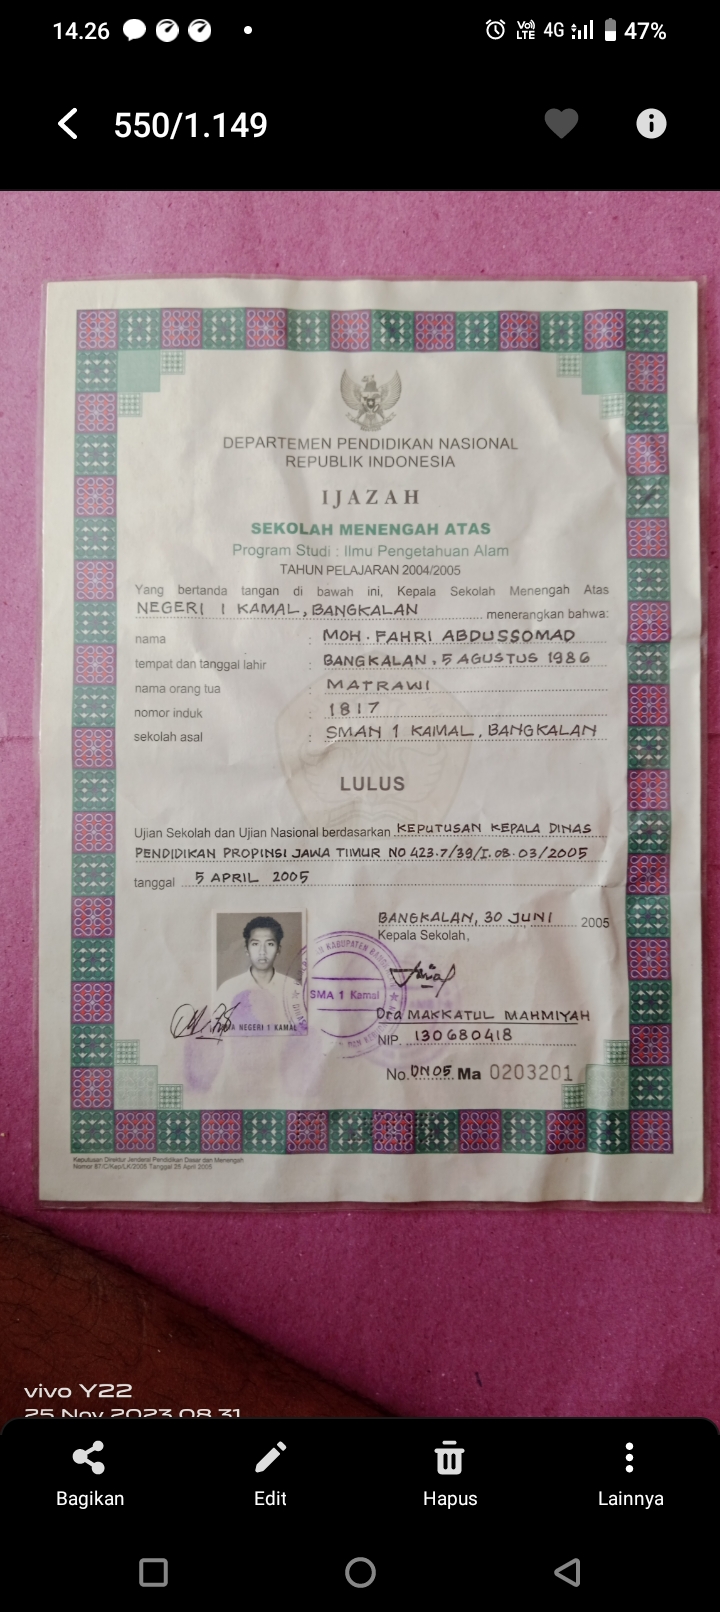 14.26
Vo)
LTE
4G
47%
550/1.149
DEPARTEMEN PENDIDIKAN NASIONAL
REPUBLIK INDONESIA
IJAZAH
SEKOLAH MENENGAH ATAS
Program Studi : Ilmu Pengetahuan Alam
TAHUN PELAJARAN 2004/2005
Yang bertanda tangan di bawah ini, Kepala Sekolah Menengah Atas
NEGERI 1 KAMAL, BANGKALAN menerangkan bahwa:
nama : MOH. FAHRI ABDUSSOMAD
tempat dan tanggal lahir : BANGKALAN, 5 AGUSTUS 1986
nama orang tua : MATRAWI
nomor induk : 1817
sekolah asal : SMAN 1 KAMAL, BANGKALAN
LULUS
Ujian Sekolah dan Ujian Nasional berdasarkan KEPUTUSAN KEPALA DINAS
PENDIDIKAN PROPINSI JAWA TIMUR NO 423.7/39/I.08.03/2005
tanggal 5 APRIL 2005
BANGKALAN, 30 JUNI 2005
Kepala Sekolah,
KABUPATEN
SMA 1 Kamal
NEGERI 1 KAMAL
Dra MAKKATUL MAHMIYAH
NIP. 130680418
No. DN 05 Ma 0203201
Keputusan Direktur Jenderal Pendidikan Dasar dan Menengah
Nomor 87/C/Kep/LK/2005 Tanggal 25 April 2005
vivo Y22
25 Nov 2023 08.31
Bagikan
Edit
Hapus
Lainnya